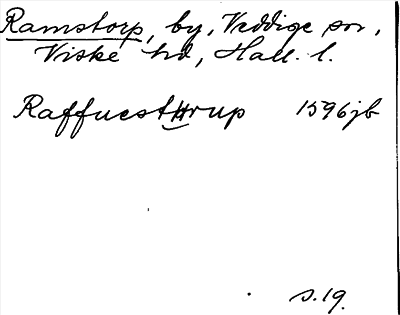 Ramstorp, by, Veddige sn,
Viske hd, Hall. l.
Raffuesttrup 1596 jb
s. 19.